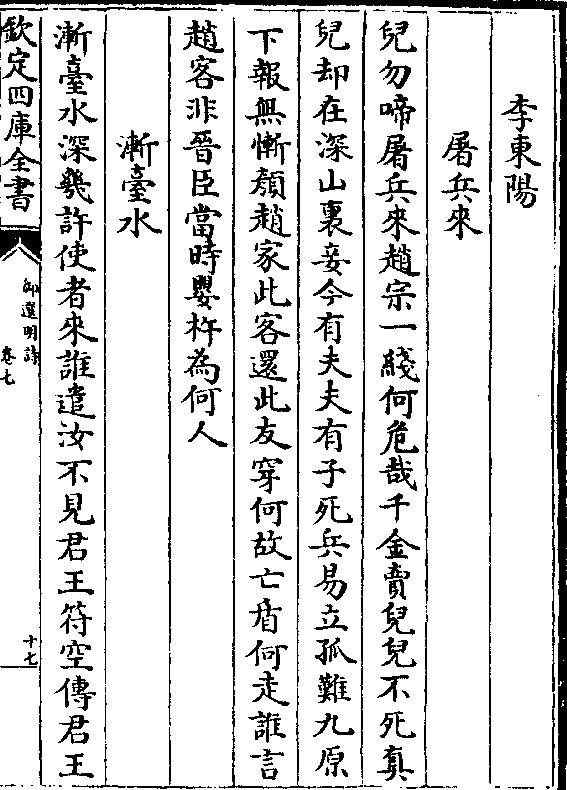 李東陽
屠兵來
兒勿啼屠兵來趙宗一綫何危哉千金賣兒兒不死真
兒却在深山裏妾今有夫夫有子死兵易立孤難九原
下報無慚顔趙家此客還此友穿何故亡盾何走誰言
趙客非晉臣當時嬰杵為何人
漸臺水
漸臺水深幾許使者來誰遣汝不見君王符空傳君王
欽定四庫全書
御選明詩
卷七
十七